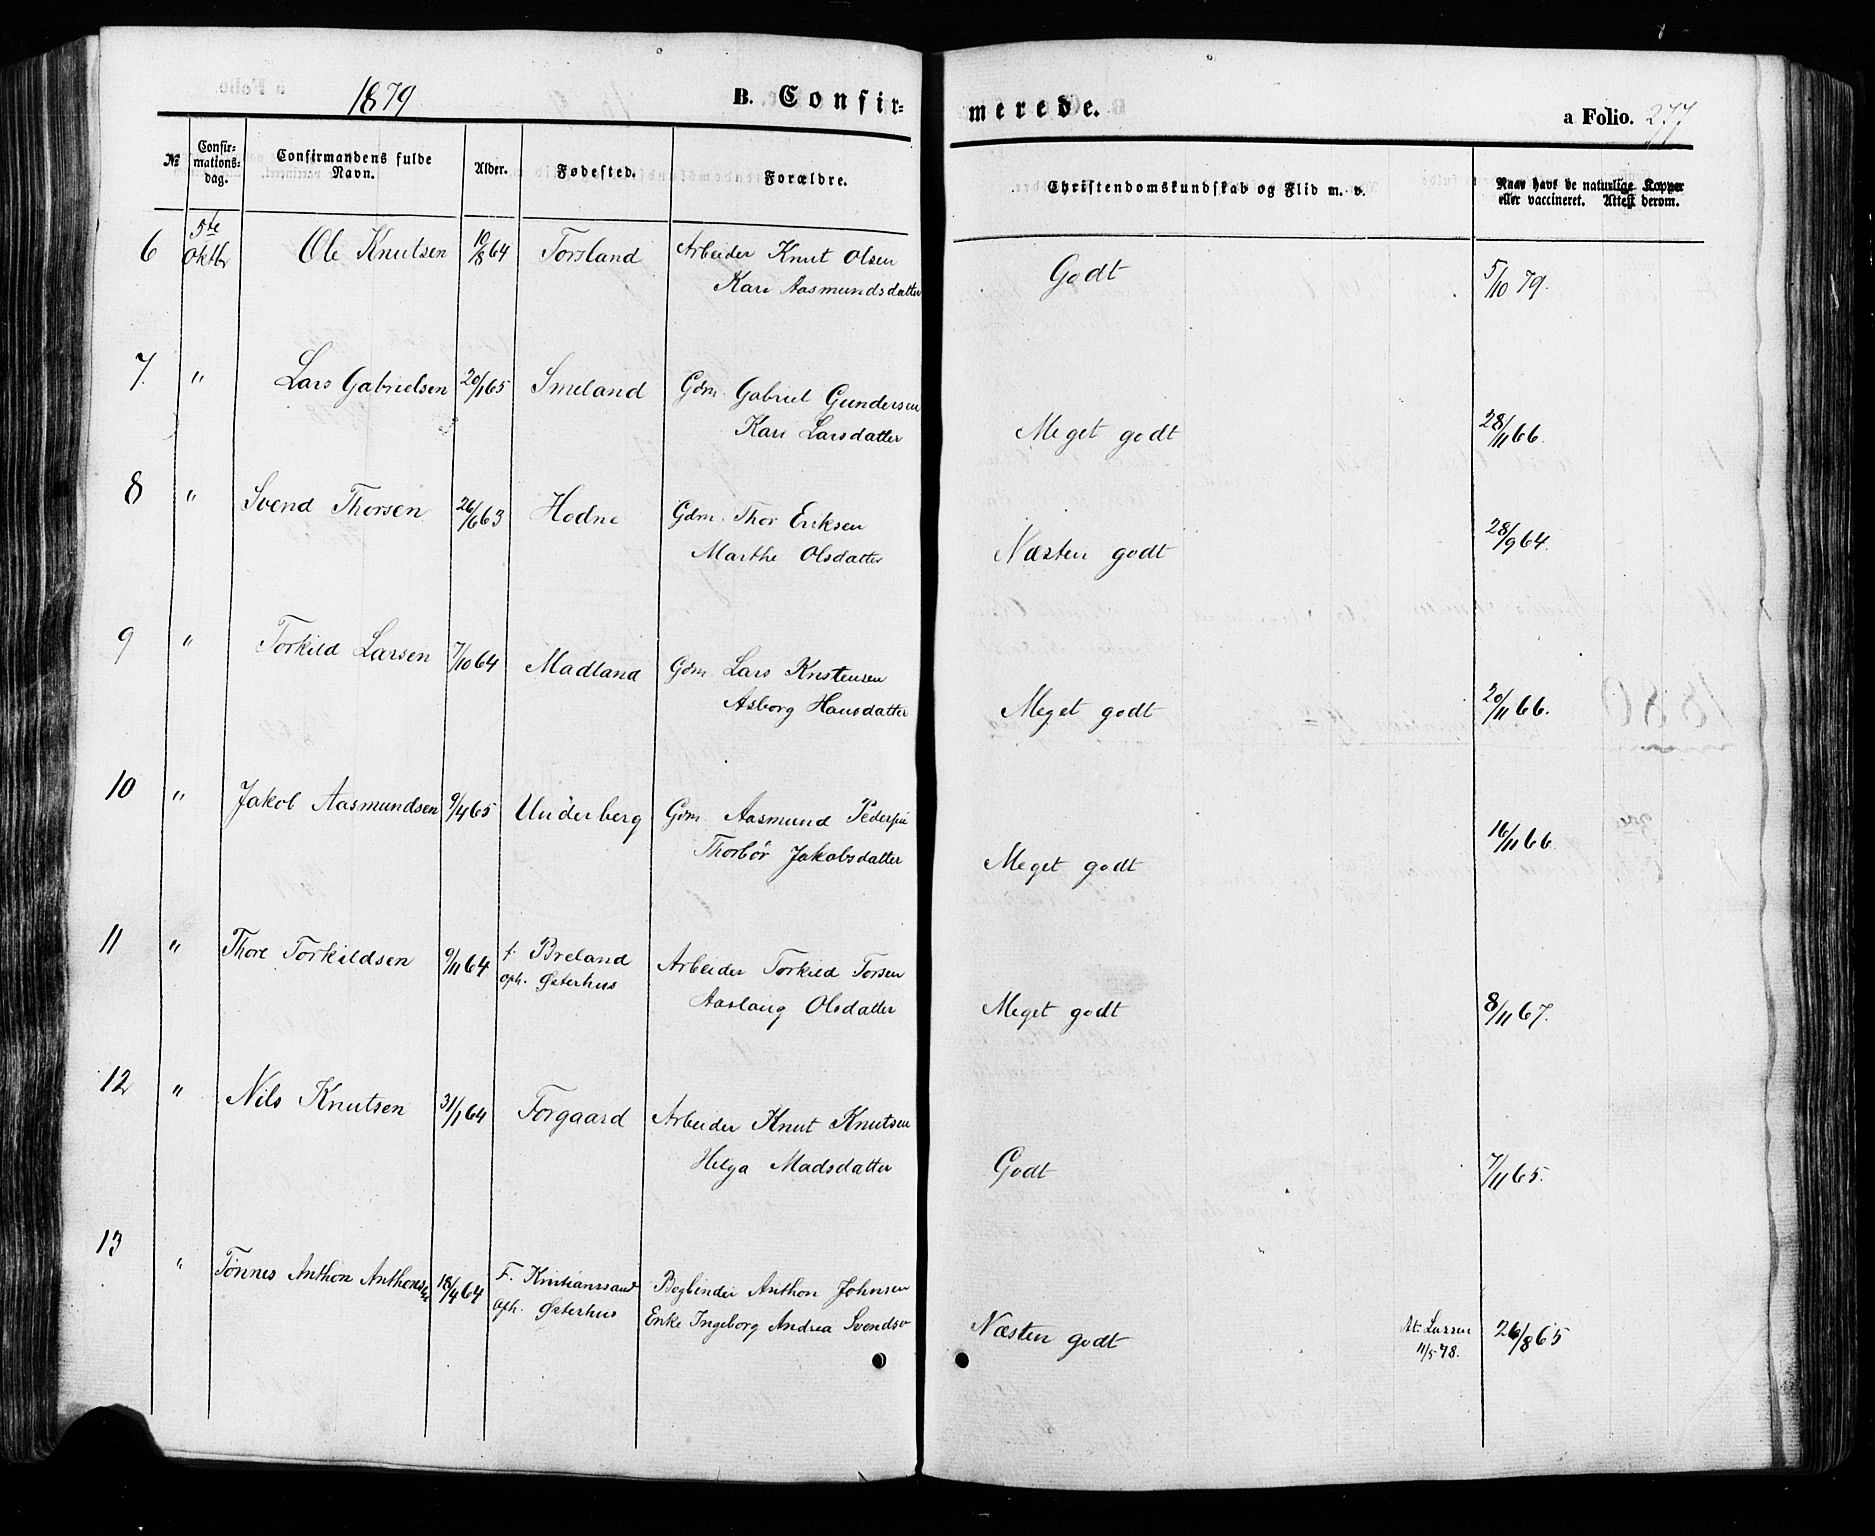 1879 B. Confir= merede. a Folio. 277
№ Confir=mations=dag. Confirmandens fulde Navn. Alder. Fødested. Forældre. Christendomskundskab og Flid m. v. Naar havt de naturlige Kopper eller vaccineret. Attest derom.
6 5te Oktbr Ole Knutsen 10/8 64 Torsland Arbeider Knut Olsen Godt 5/10 79.
Kari Aasmundsdatter
7. " Lars Gabrielsen 20/1 65 Smeland Gdm. Gabriel Gundersen Meget godt 28/11 66.
Kari Larsdatter
8 " Svend Thorsen 26/6 63 Hodne Gdm. Thor Eriksen Næsten godt 28/9 64.
Marthe Olsdatter
9 " Torkild Larsen 7/10 64 Madland Gdm. Lars Kristensen Meget godt 20/11 66.
Asborg Hansdatter
10 " Jakob Aasmundsen 9/4 65 Underberg Gdm. Aasmund Pedersen Meget godt 16/11 66.
Thorbør Jakobsdatter
11 " Thore Torkildsen 9/11 64 f. Breland Arbeider Torkild Torsen Meget godt 8/11 67.
oph. Østerhus Aaslaug Olsdatter
12 " Nils Knutsen 31/1 64 Forgaard Arbeider Knut Knutsen Godt 7/11 65.
Helga Madsdatter
13 " Tønnes Anthon Anthonsen 18/4 64 F. Kristianssand Bogbinder Anthon Johnsen Næsten godt At: Lassen 26/8 65
oph. Østerhus Enke Ingeborg Andrea Svendsd 11/5 78.